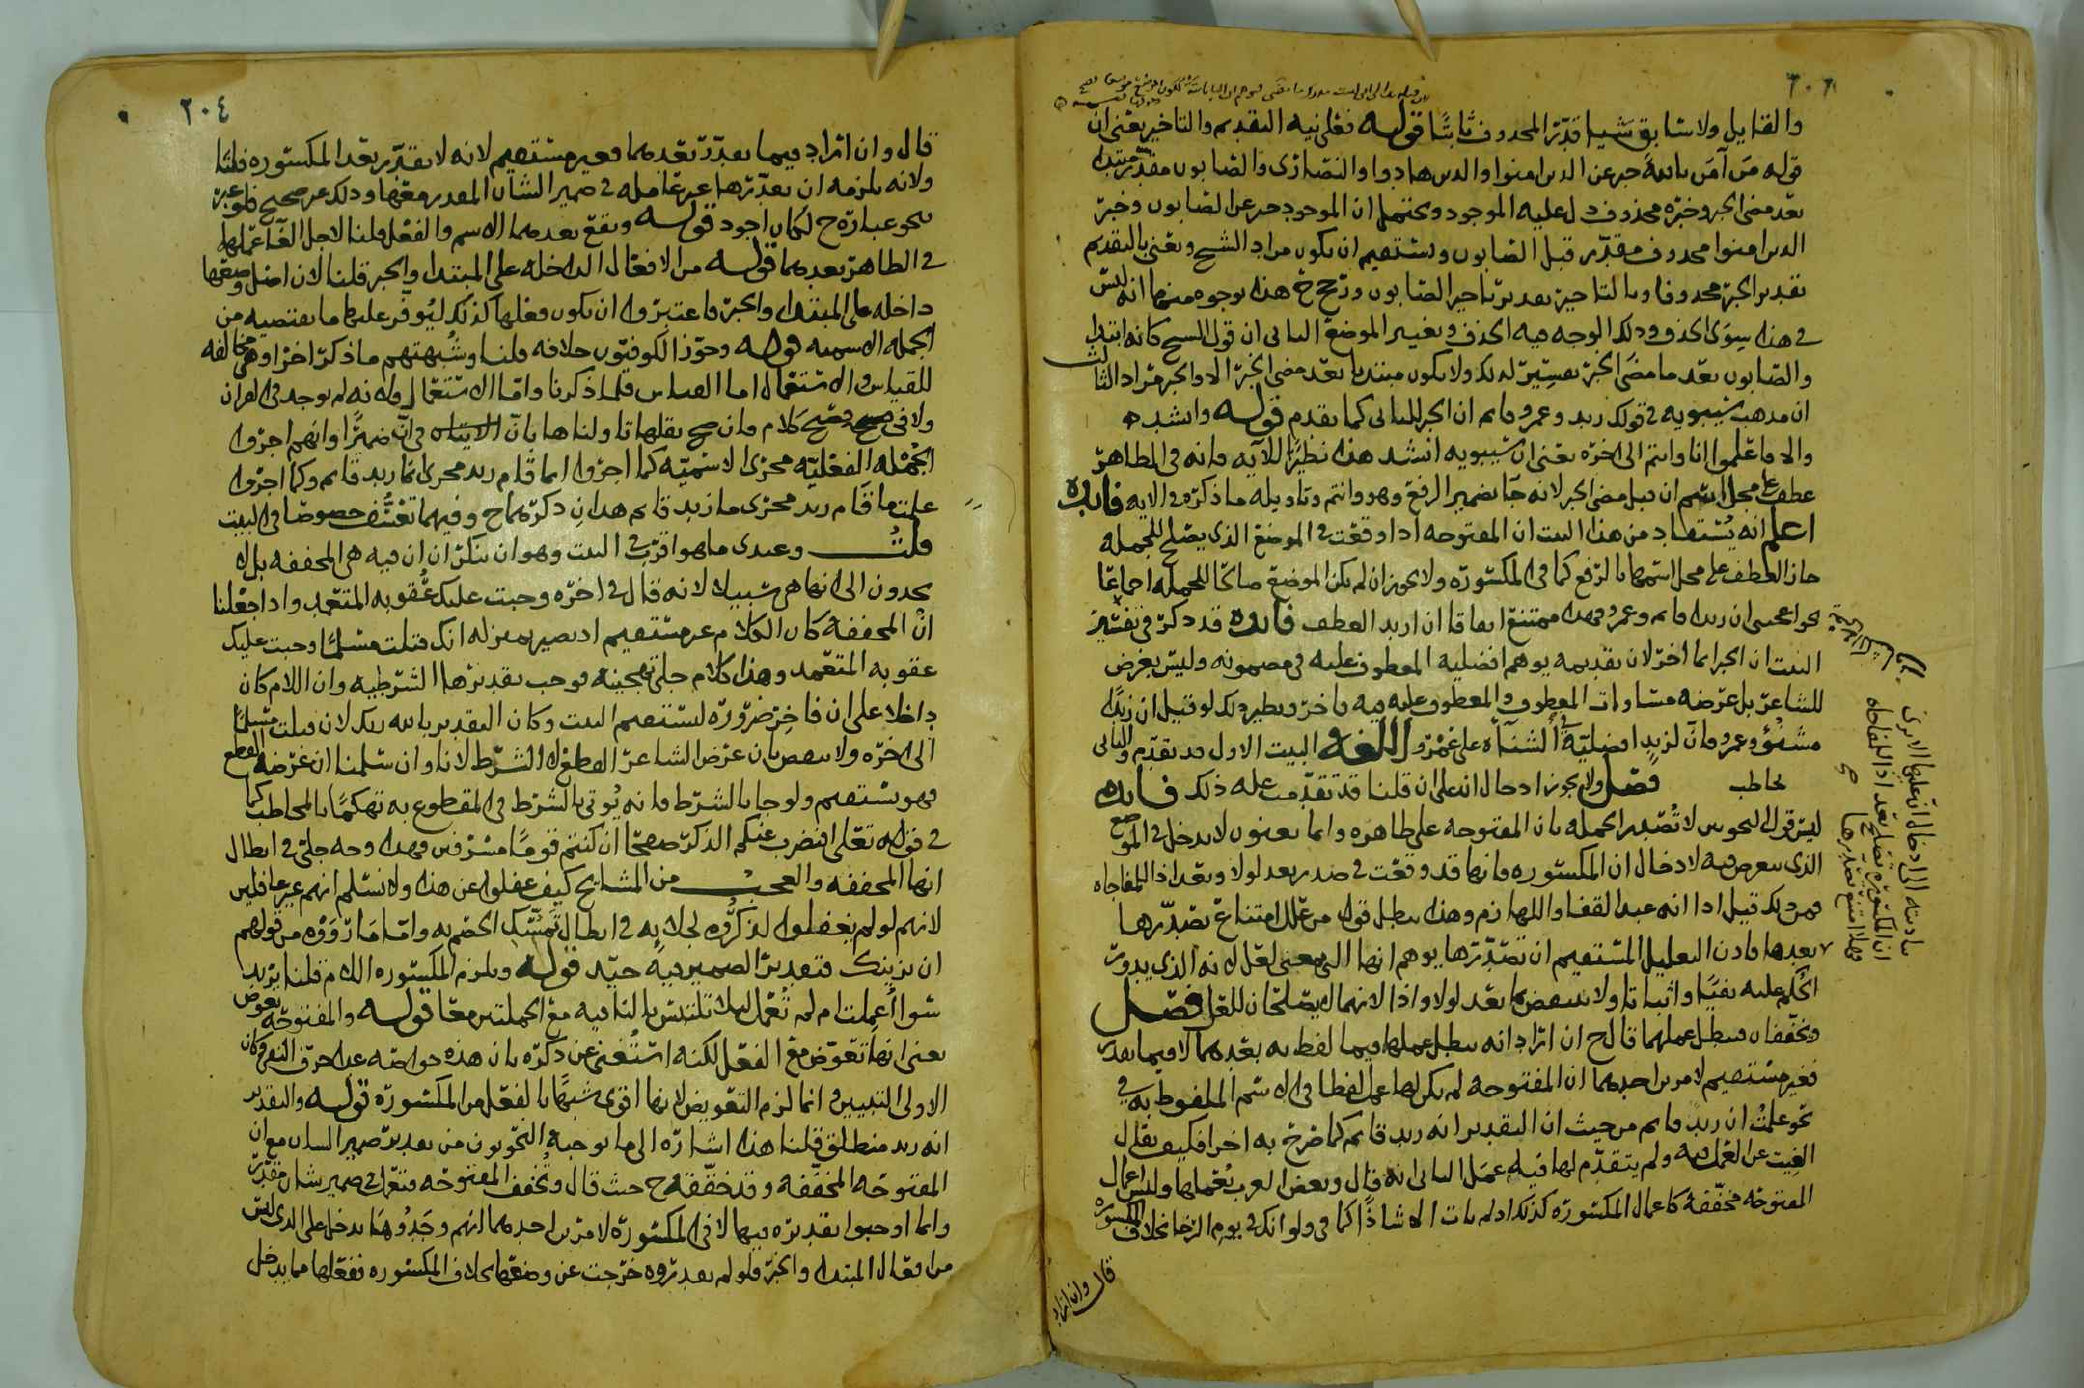 والقايل ولا سابق شيا قدر المحدوف ثابتا قوله فعلى نيه التقديم والتاخير يعني ان
قوله من آمن بالله خبر عن الذين امنوا والذين هادوا والنصارى والصابون مقدر مبتدا
بعد مضي الخبر وخبره محذوف دل عليه الموجود ويحتمل ان الموجود خبر عن الصابون وخبر
الذين امنوا محدوف مقدر قبل الصابون ويستقيم ان يكون مراد الشيخ ويعني بالتقديم
تقدير الخبر محدوفا وبالتاخير تقدير تاخير الصابون ورجح هذه بوجوه منها انه ليس
في هذا سوى الحذف وذلك الوجه فيه الحذف وتغيير الموضع الثاني ان قول الشيخ كانه ابتدا
والصابون بعد ما مضى الخبر تفسير لذلك ولا يكون مبتدا بعد مضي الخبر الا والخبر مراد الثالث
ان مذهب سيبويه في قولك زيد وعمرو قايم ان الخبر للثاني كما تقدم قوله وانشد
والا فاعلموا انا وانتم الى اخره يعني ان سيبويه انشد هذا نظيرا للآيه فانه في الظاهر
عطف على محل اسم ان قبل مضي الخبر لانه جا بضمير الرفع وهو وانتم وتاويله ما ذكره في الايه فايده
اعلم انه يستفاد من هذا البيت ان المفتوحه اذا وقعت في الموضع الذي يصلح للجمله
جاز العطف على محل اسمها بالرفع كما في المكسوره ولا يجوز ان لم يكن الموضع صالحا للجمله اجماعا
نحو اعجبني ان زيدا قايم وعمرو فهذا ممتنع اتفاقا ان اريد العطف فايده قد ذكر في تفسير
البيت ان الخبر انما اخر لان تقديمه يوهم افضليه المعطوف عليه في مضمونه وليس بغرض
للشاعر بل غرضه مساواة المعطوف والمعطوف عليه فيه فاخر ونظير ذلك لو قيل ان زيدا
مشنؤ وعمرو فان لزيد افضلية الشنأة على عمرو اللغه البيت الاول قد تقدم والثاني
نخاطب فصل ولا يجوز ادخال ان على ان قلنا قد تقدمت عله ذلك فايده
ليس قول النحويين لا تصدر الجمله بان المفتوحه على ظاهره وانما يعنون لا تدخل في الموضع
الذي يتعرض فيه لادخال ان المكسوره فانها قد وقعت في صدر بعد لولا وبعد اذا للمفاجاه
فمن ذلك قيل اذا انه عبد القفا واللهازم وهذا يبطل قول من علل امتناع تصدرها
بعدها فاذن التعليل المستقيم ان تصدرها يوهم انها التي بمعنى لعل لانه الذي يدور
الحكم عليه نفيا واثباتا ولا ينتقض بما بعد لولا واذا لانهما لا يصلحان للعل فصل
وتخففان فيبطل عملهما قال ح ان اراد انه يبطل عملها فيما لفظ به بعدهما لا فيما يقدر
فغير مستقيم لامرين احدهما ان المفتوحه لم يكن لها عمل لفظا في الاسم الملفوط به في
نحو علمت ان زيد قايم من حيث ان التقدير انه زيد قايم كما صرح به اخرا فكيف يقال
الغيت عن العمل فيه ولم يتقدم لها فيه عمل الثاني انه قال وبعض العرب يعملها وليس اعمال
المفتوحه مخففه كاعمال المكسوره كذلك اذ لم يات الا شاذا كما في ولو انك في يوم الرخا بخلاف المكسوره
قال وان اراد
٢٠٤
قال وان اراد فيما يقدر بعدهما فغير مستقيم لانه لا يقدر بعد المكسوره قلنا
ولانه يلزمه ان يقدرها غير عامله في ضمير الشان المقدر معها وذلك غير صحيح فلو عبر
بنحو عبارة ح لكان اجود قوله ويقع بعدهما الاسم والفعل قلنا لاجل الغآ عملها
في الظاهر بعدهما قوله من الافعال الداخله على المبتدا والخبر قلنا لان اصل وضعها
داخله على المبتدا والخبر فاعتبروا ان يكون فعلها كذلك ليوفر عليها ما تقتضيه من
الجمله الاسميه قوله وجوز الكوفيون خلافه قلنا وشبهتهم ما ذكر اخرا وهي مخالفه
للقياس والاستعمال اما القياس فلما ذكرنا واما الاستعمال ولانه لم يوجد في القران
ولا في فصيح كلام فان صح نقلها تاولناها بان في ان ضميرا وانهم اجروا
الجمله الفعليه مجرى الاسميه كما اجروا انما قام زيد مجرى انما زيد قايم وكما اجروا
علمت ما قام زيد مجرى ما زيد قايم هذان ذكرهما ح وفيهما تعسف خصوصا في البيت
قلت وعندي ما هو اقرب في البيت وهو ان ننكر ان ان فيه هي المخففه بل لا
يجدون الى انها هي سبيلا لانه قال في اخره وجبت عليك عقوبه المتعمد واذا جعلنا
ان المخففه كان الكلام غير مستقيم اذ يصير بمنزله انك قتلت مسلما وجبت عليك
عقوبه المتعمد وهذا كلام جلي تهجينه فوجب تقديرها الشرطيه وان اللام كان
داخلا على ان فاخر ضروره ليستقيم البيت وكان التقدير بالله ربك لان قتلت مسلما
الى اخره ولا ينتقض بان غرض الشاعر القطع لا الشرط لانا وان سلمنا ان غرضه القطع
فهو يستقيم ولو جا بالشرط فانه يُوتى بالشرط في المقطوع به تهكما بالمخاطب كما
في قوله تعلى افنضرب عنكم الذكر صفحا ان كنتم قوما مسرفين فهذا وجه جلي في ابطال
انها المخففه والعجب من المشايخ كيف غفلوا عن هذا ولا نسلم انهم غير غافلين
لانهم لو لم يغفلوا لذكروه لجلايه في ابطال تمسك الخصم به واما ما رووه من قولهم
ان يزينك فتقدير الضمير فيه جيد قوله ويلزم المكسوره اللام قلنا يريد
سوا أعملت ام لم تُعمل ليلا تلتبس بالنافيه مع الجملتين معا قوله والمفتوحه يعوض
يعني انها تعوض مع الفعل لكنه استُغني عن ذكره بان هذه عوضه عدا حرف النفي وكان
الاولى التبيين وانما لزم التعويض لانها اقوى شبها بالفعل من المكسوره قوله والتقدير
انه زيد منطلق قلنا هذا اشاره الى ما يوجبه النحويون من تقدير ضمير الشان مع ان
المفتوحه المخففه وقد حققه ح حيث قال وتخفف المفتوحه فتعمل في ضمير شان مقدر
وانما اوجبوا تقديره فيها لا في المكسوره لامرين احدهما انهم وجدُوها تدخل على الذي ليس
من افعال المبتدا والخبر فلو لم يقدروه خرجت عن وضعها بخلاف المكسوره ففعلها مما يدخل